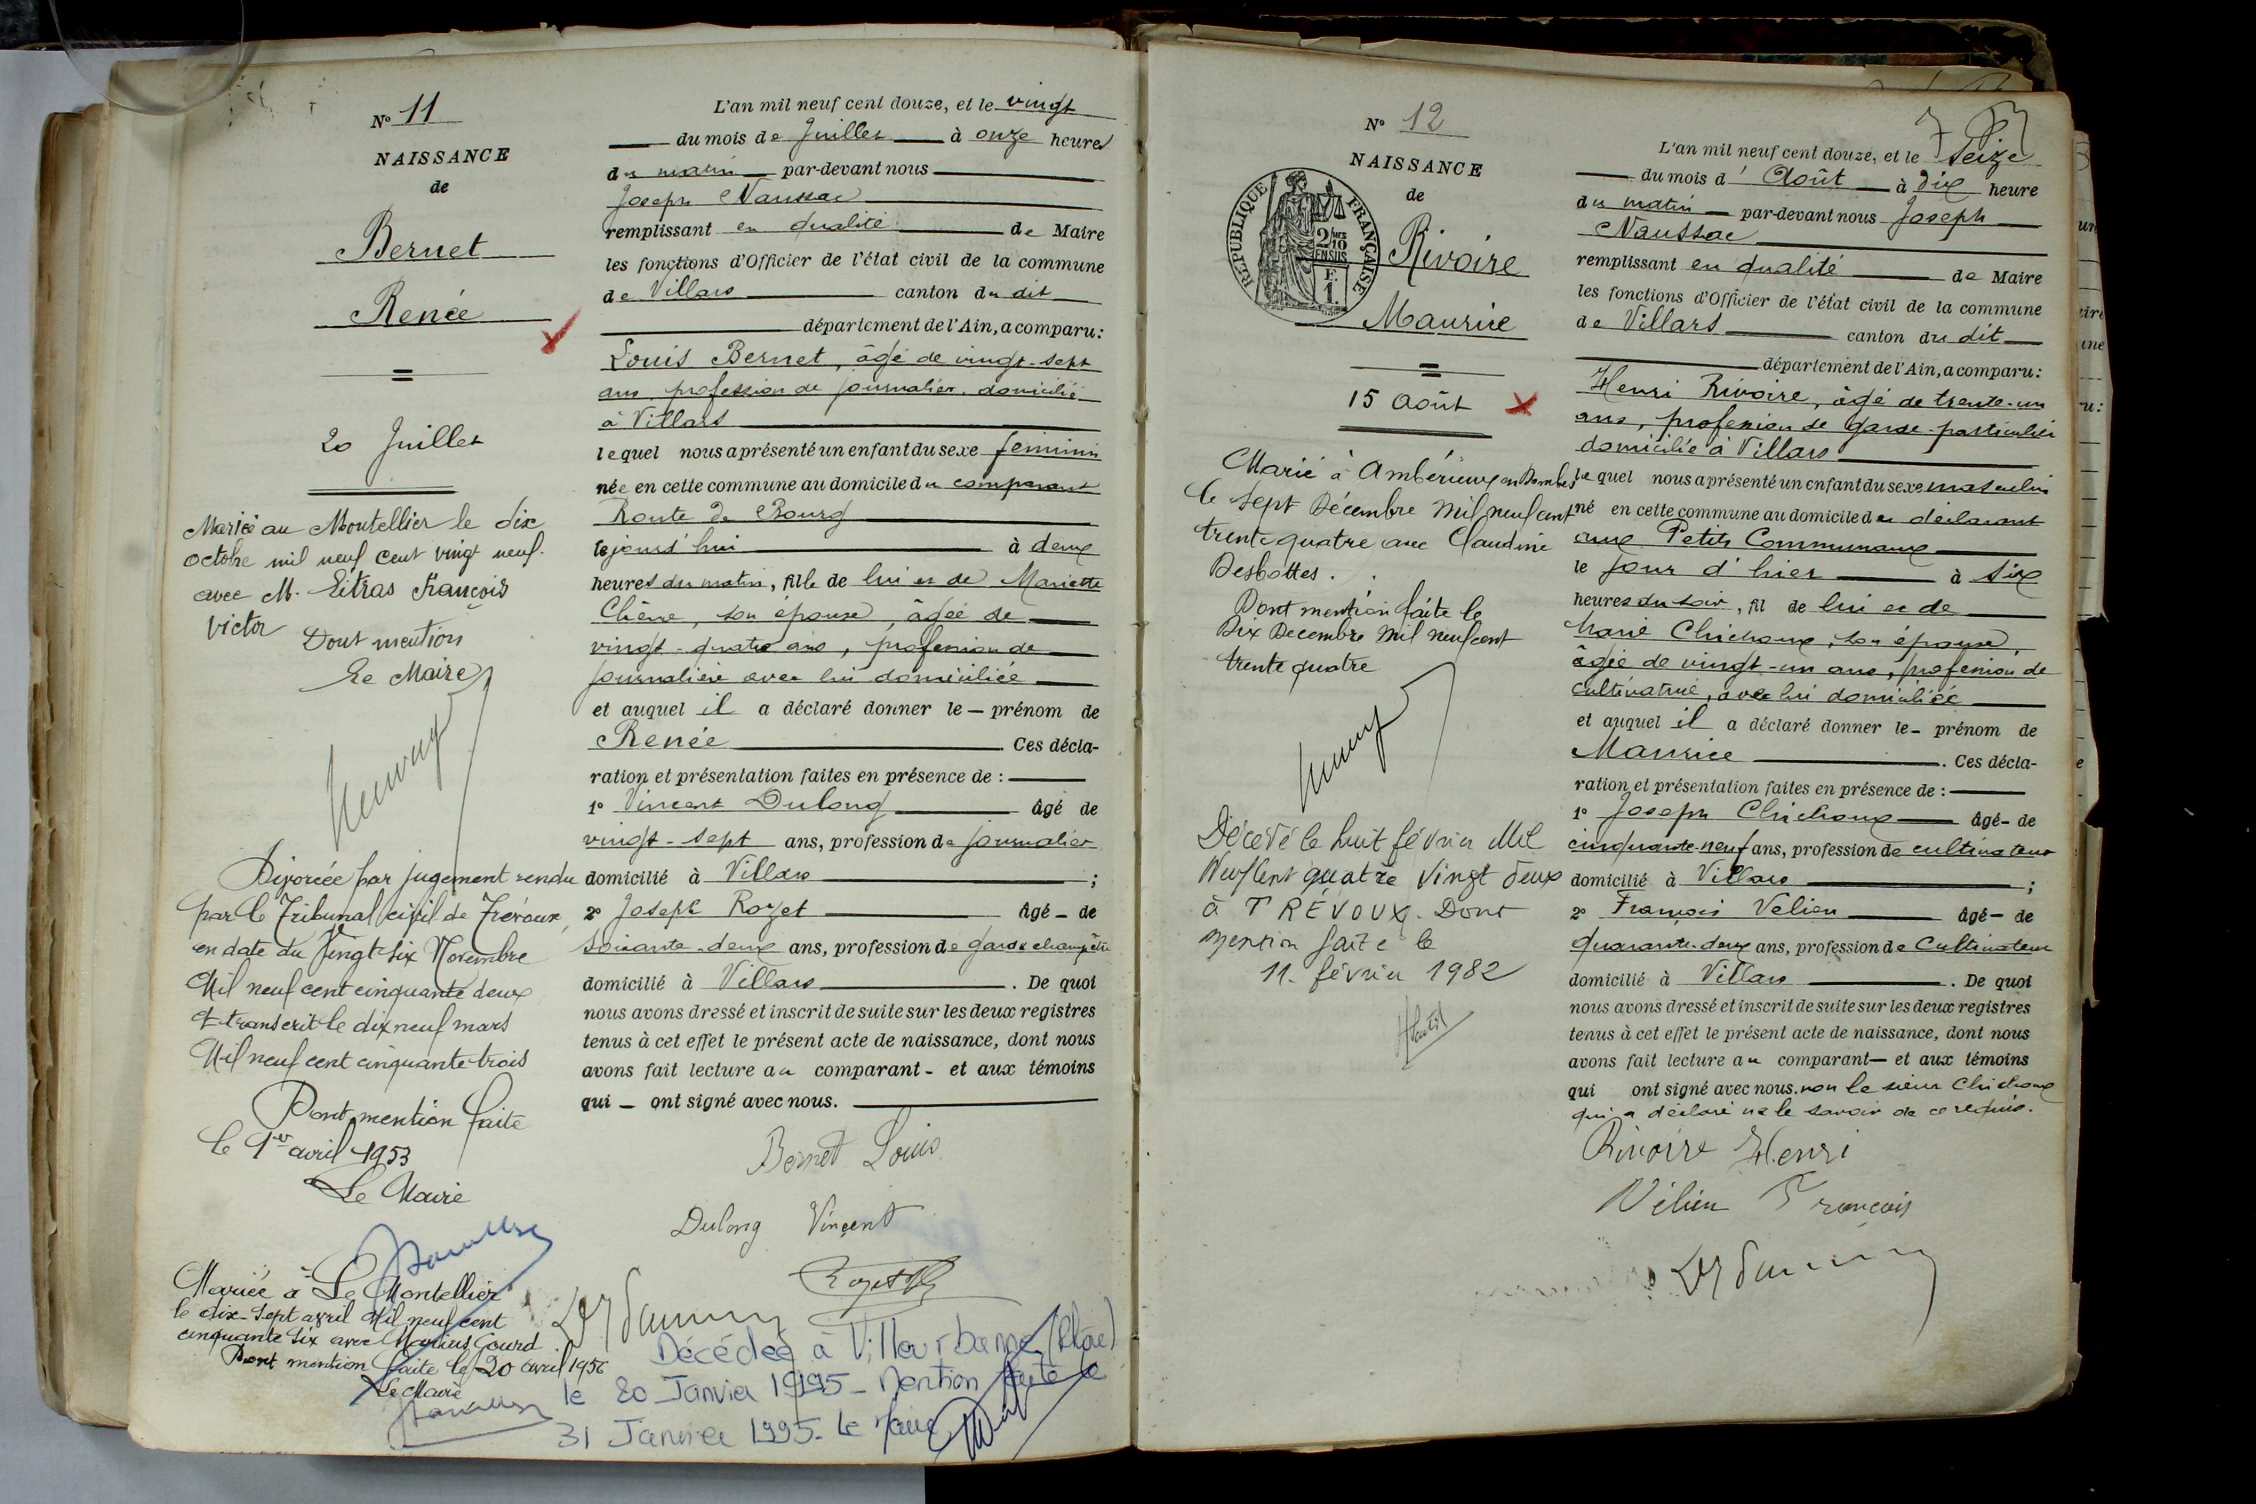 N° 11
NAISSANCE
de
Bernet
Renée
20 Juillet
Mariée au Montellier le dix
octobre mil neuf cent vingt neuf.
avec M. Eitras François
Victor
Dont mention
Le Maire
Divorcée par jugement rendu
par le Tribunal civil de Trévoux,
en date du Vingt six Novembre
Mil neuf cent cinquante deux
& transcrit le dix neuf mars
Mil neuf cent cinquante trois
Dont mention faite
le 1er avril 1953
Le Maire
Mariée à Le Montellier
le dix-sept avril Mil neuf cent
cinquante six avec Marius Gourd
Dont mention faite le 20 avril 1956
Le Maire
L'an mil neuf cent douze, et le vingt
du mois de Juillet à onze heures
du matin par-devant nous
Joseph Naussac
remplissant en qualité de Maire
les fonctions d'Officier de l'état civil de la commune
de Villars canton du dit
département de l'Ain, a comparu:
Louis Bernet, âgé de vingt-sept
ans, profession de journalier, domicilié
à Villars
lequel nous a présenté un enfant du sexe féminin
née en cette commune au domicile du comparant
Route de Bourg
le jourd'hui à deux
heures du matin, fille de lui et de Mariette
Chêne, son épouse, âgée de
vingt-quatre ans, profession de
journalière avec lui domiciliée
et auquel il a déclaré donner le — prénom de
Renée Ces décla-
ration et présentation faites en présence de :
1° Vincent Dulong âgé de
vingt-sept ans, profession de journalier
domicilié à Villars ;
2° Joseph Rozet âgé — de
soixante-deux ans, profession de garde champêtre
domicilié à Villars . De quoi
nous avons dressé et inscrit de suite sur les deux registres
tenus à cet effet le présent acte de naissance, dont nous
avons fait lecture au comparant - et aux témoins
qui — ont signé avec nous.
Bernet Louis
Dulong Vincent
Rozet
Décédée à Villeurbanne (Rhône)
le 20 Janvier 1995 - Mention faite le
31 Janvier 1995 - Le Maire
N° 12
NAISSANCE
de
REPUBLIQUE FRANÇAISE
2/10 EN SUS
F.
1.
Rivoire
Maurice
15 Août
Marié à Ambérieux en Dombes
le Sept Décembre Mil neuf cent
trente quatre avec Claudine
Desbottes.
Dont mention faite le
Dix Decembre Mil neuf cent
trente quatre
Décédé le huit février Mil
Neuf Cent quatre vingt deux
à TRÉVOUX. Dont
mention faite le
11. février 1982
L'an mil neuf cent douze, et le Seize
du mois d' Août à dix heure
du matin par-devant nous Joseph
Naussac
remplissant en qualité de Maire
les fonctions d'Officier de l'état civil de la commune
de Villars canton du dit
département de l'Ain, a comparu:
Henri Rivoire, âgé de trente-un
ans, profession de garde-particulier
domicilié à Villars
lequel nous a présenté un enfant du sexe masculin
né en cette commune au domicile du déclarant
aux Petits Communaux
le jour d'hier à six
heures du soir, fil de lui et de
Marie Chichoux, son épouse,
âgée de vingt-un ans, profession de
cultivatrice, avec lui domiciliée
et auquel il a déclaré donner le - prénom de
Maurice . Ces décla-
ration et présentation faites en présence de :
1° Joseph Chichoux âgé - de
cinquante-neuf ans, profession de cultivateur
domicilié à Villars ;
2° François Velien âgé — de
quarante-deux ans, profession de Cultivateur
domicilié à Villars . De quoi
nous avons dressé et inscrit de suite sur les deux registres
tenus à cet effet le présent acte de naissance, dont nous
avons fait lecture au comparant — et aux témoins
qui ont signé avec nous. non le sieur Chichoux
qui a déclaré ne le savoir de ce requis.
Rivoire Henri
Vélien François